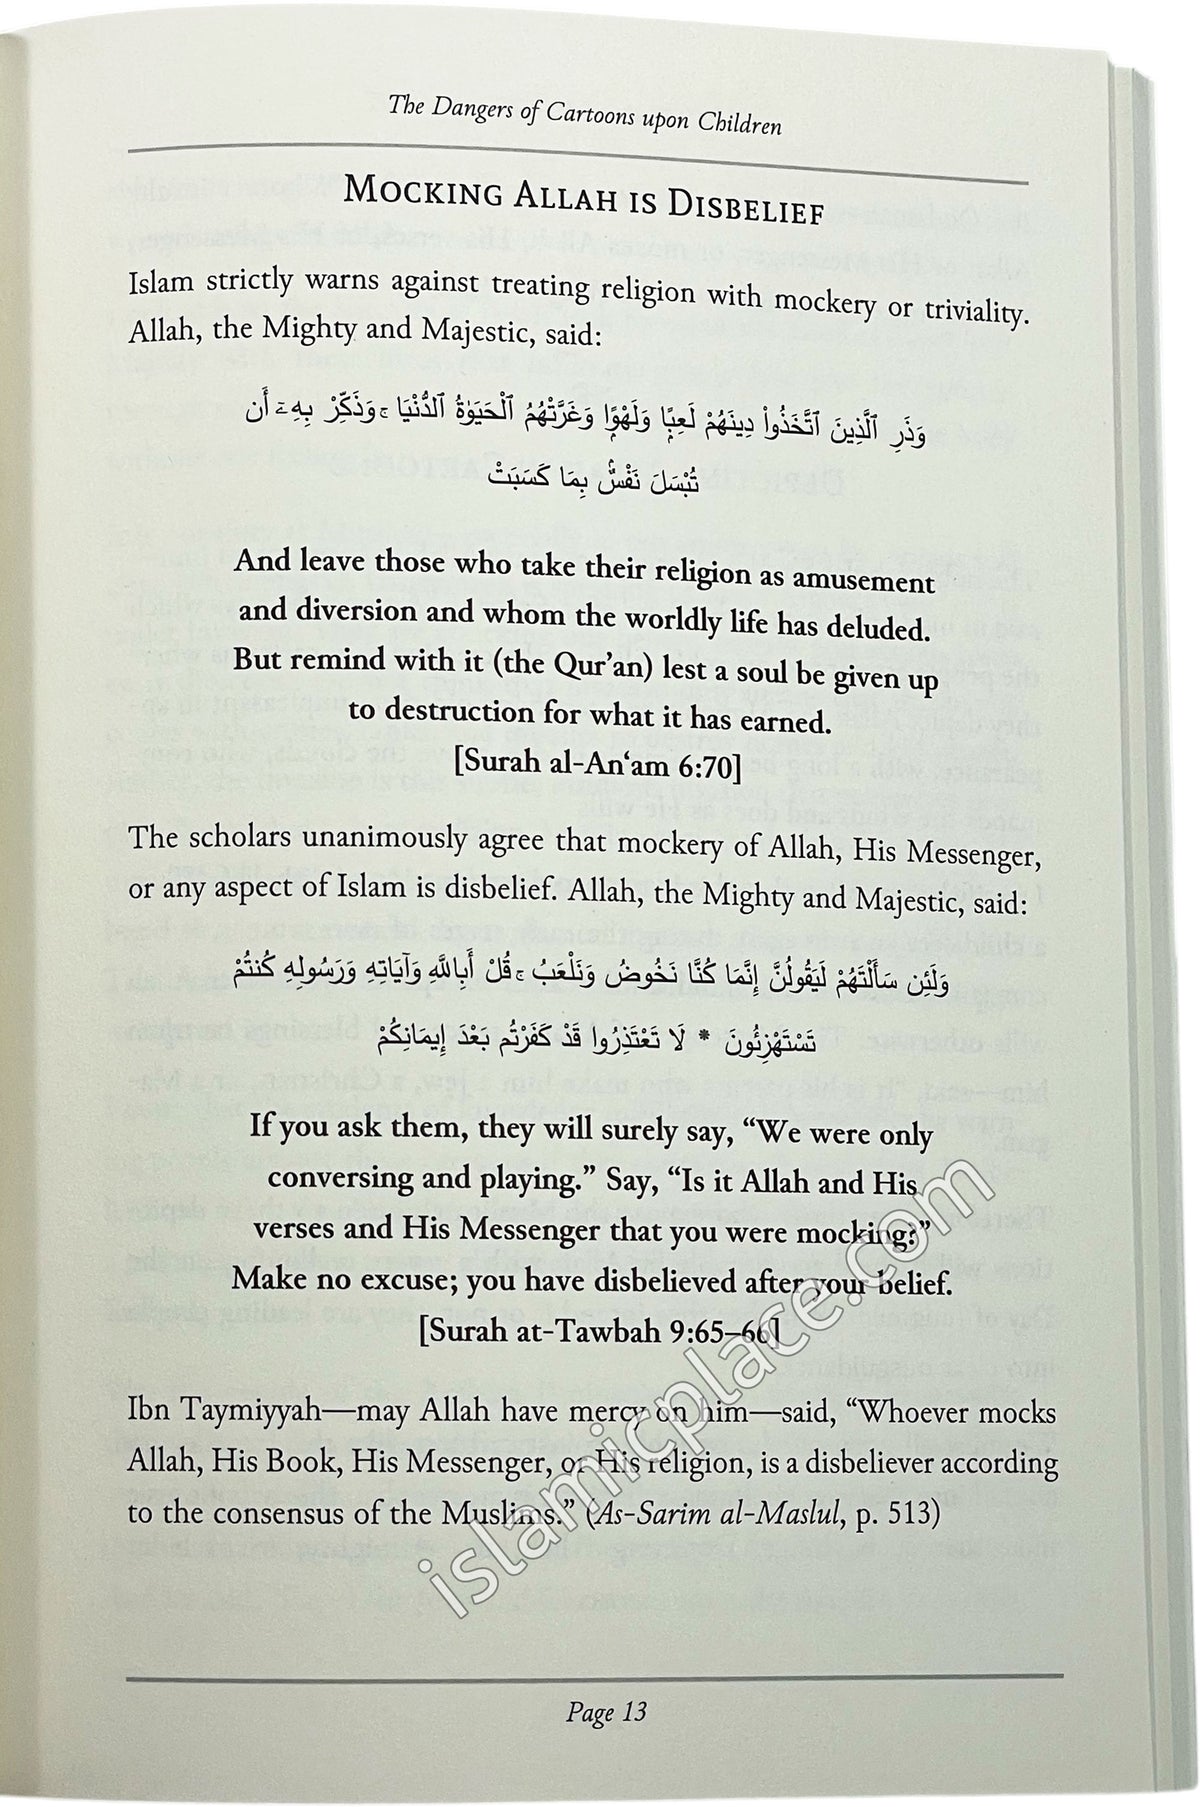 The Dangers of Cartoons upon Children
MOCKING ALLAH IS DISBELIEF
Islam strictly warns against treating religion with mockery or triviality.
Allah, the Mighty and Majestic, said:
وَذَرِ ٱلَّذِينَ ٱتَّخَذُوا۟ دِينَهُمْ لَعِبًۭا وَلَهْوًۭا وَغَرَّتْهُمُ ٱلْحَيَوٰةُ ٱلدُّنْيَا ۚ وَذَكِّرْ بِهِۦٓ أَن
تُبْسَلَ نَفْسٌۢ بِمَا كَسَبَتْ
And leave those who take their religion as amusement
and diversion and whom the worldly life has deluded.
But remind with it (the Qur’an) lest a soul be given up
to destruction for what it has earned.
[Surah al-An‘am 6:70]
The scholars unanimously agree that mockery of Allah, His Messenger,
or any aspect of Islam is disbelief. Allah, the Mighty and Majestic, said:
وَلَئِن سَأَلْتَهُمْ لَيَقُولُنَّ إِنَّمَا كُنَّا نَخُوضُ وَنَلْعَبُ ۚ قُلْ أَبِاللَّهِ وَآيَاتِهِ وَرَسُولِهِ كُنتُمْ
تَسْتَهْزِئُونَ * لَا تَعْتَذِرُوا قَدْ كَفَرْتُم بَعْدَ إِيمَانِكُمْ
If you ask them, they will surely say, “We were only
conversing and playing.” Say, “Is it Allah and His
verses and His Messenger that you were mocking?”
Make no excuse; you have disbelieved after your belief.
[Surah at-Tawbah 9:65–66]
Ibn Taymiyyah—may Allah have mercy on him—said, “Whoever mocks
Allah, His Book, His Messenger, or His religion, is a disbeliever according
to the consensus of the Muslims.” (As-Sarim al-Maslul, p. 513)
islamicplace.com
Page 13